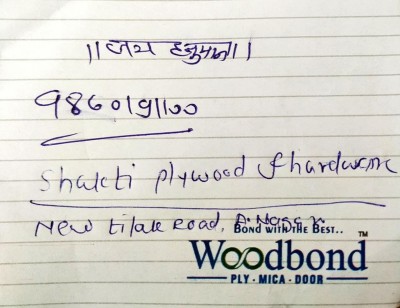 ||जय हनुमान||
9860191100
Shakti plywood & hardware
New tilak Road, A. Nagar
BOND WITH THE BEST..
Woodbond™
PLY · MICA · DOOR